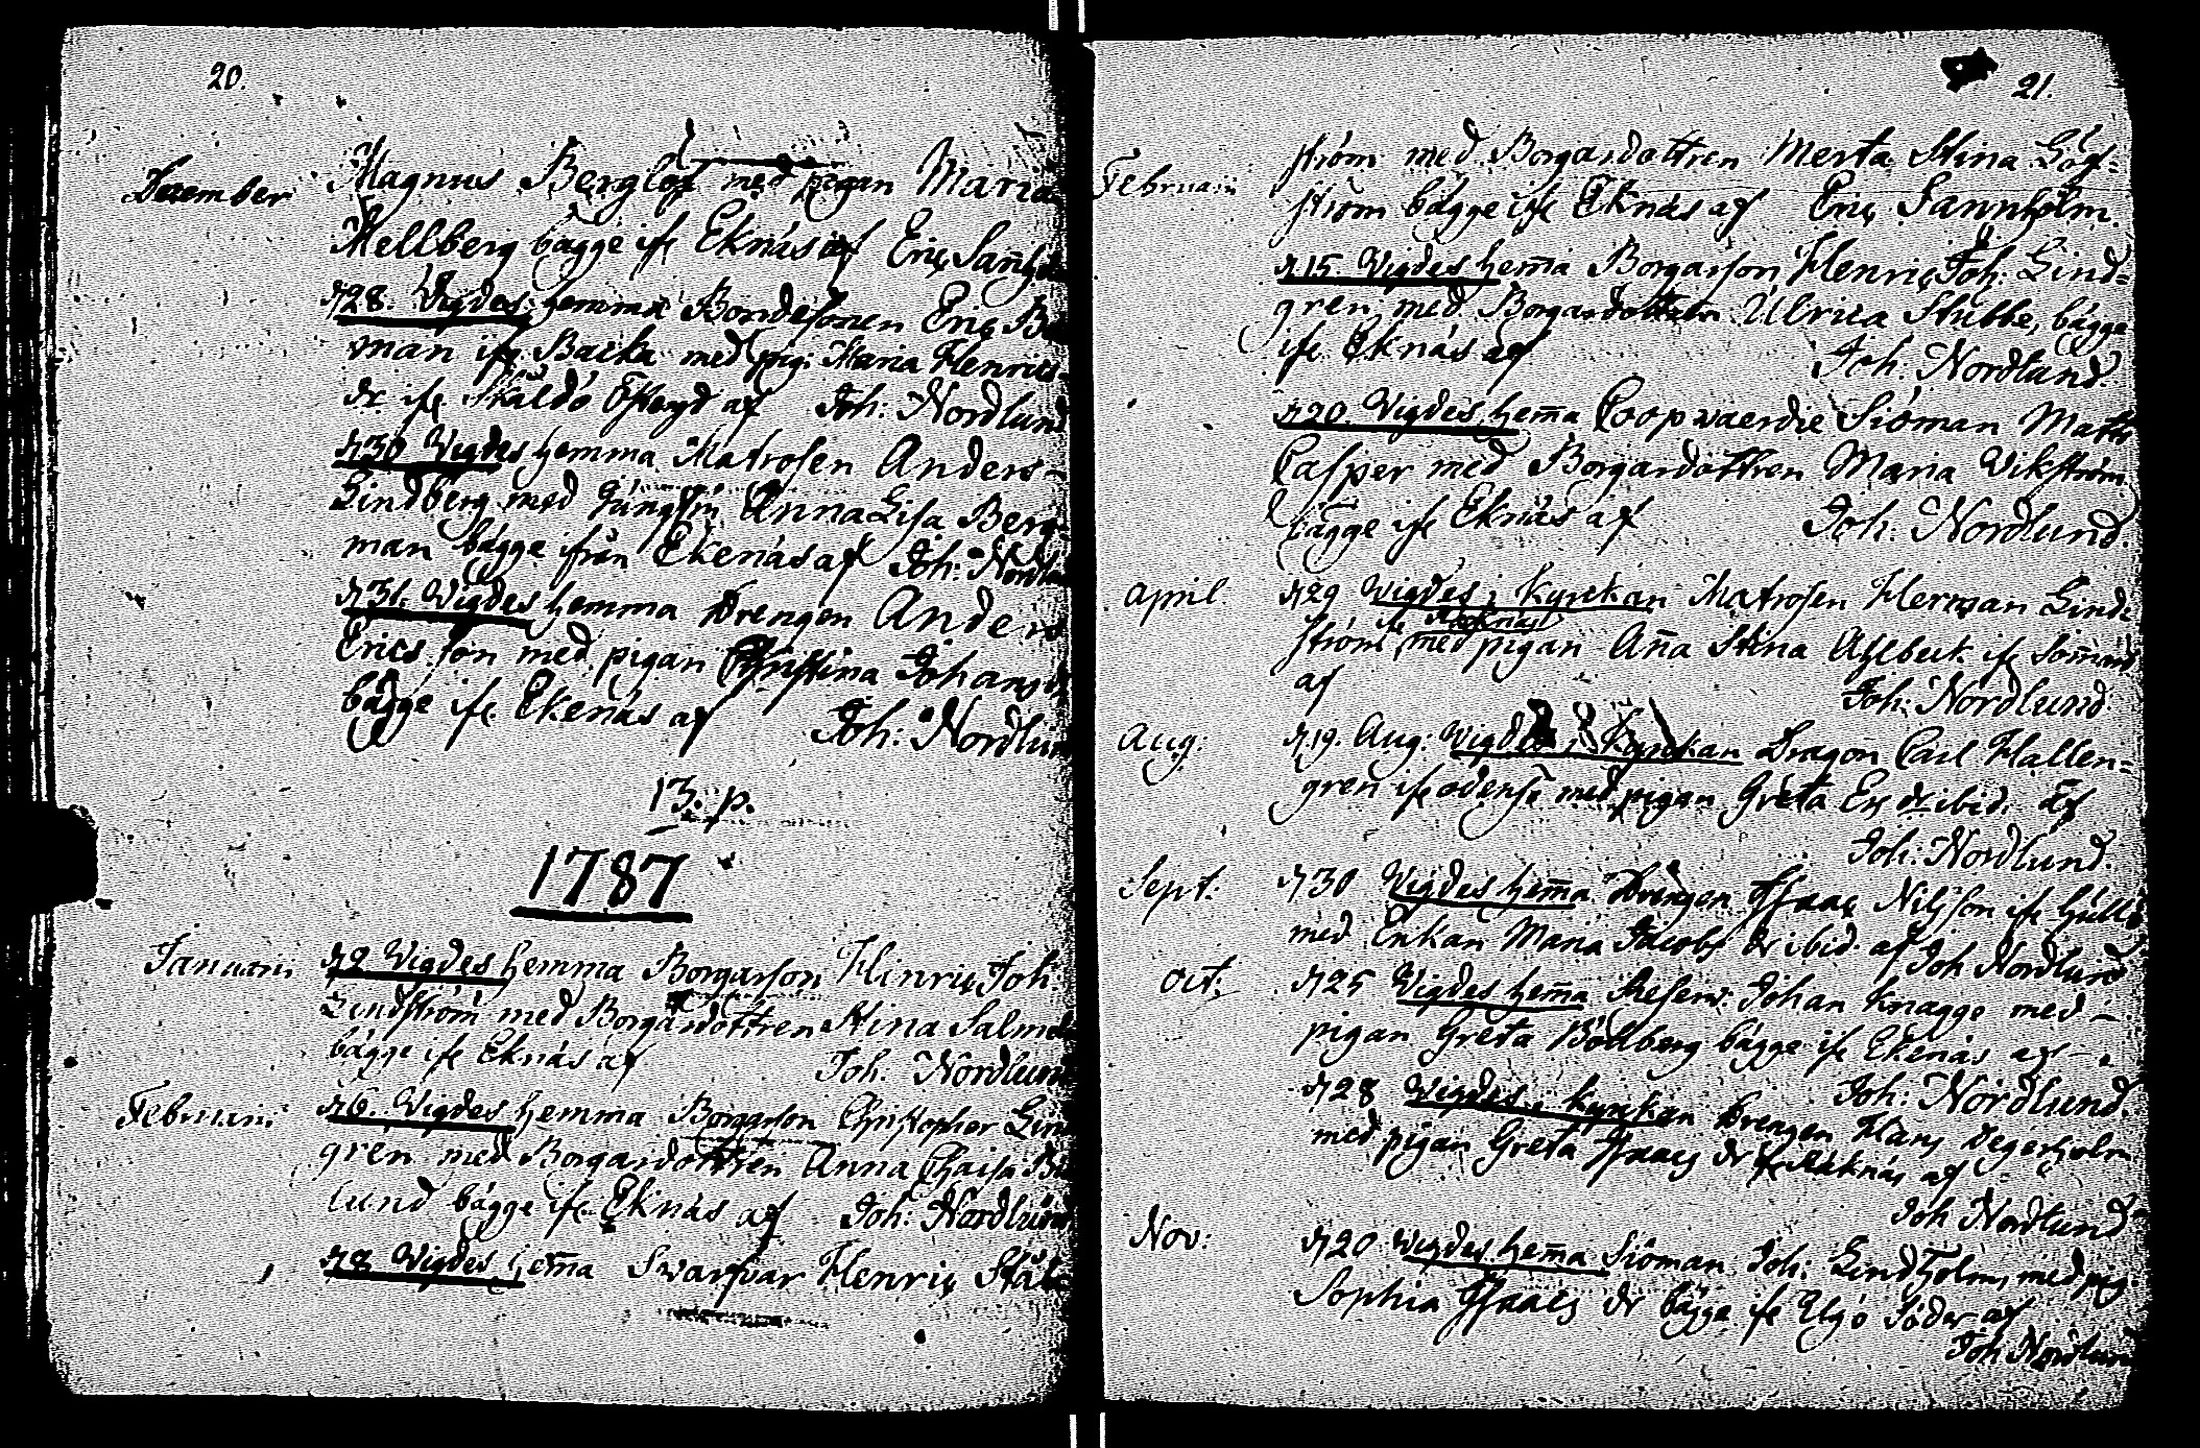 20.
December
Magnus Berglöf med pigan Maria
Mellberg bägge ifr Eknäs af Eric Sanh
d 28. Vigdes hemma Bondesonen Eric B
man ifr Backa med pig: Maria Henrics
dr ifr Skåldö af Joh: Nordlund
d 30 Vigdes hemma Matrosen Anders
Lindberg med Anna Lisa Berg-
man bägge ifrån Ekenäs af Joh: Nordlu
d 31. Vigdes hemma Drengen Anders
Ericsson med pigan Christina Johansd
bägge ifr Ekenäs af Joh: Nordlun
13. p.
1787
Januarii d 2 Vigdes hemma Borgarson Hinric Joh:
Lindström med Borgardottren Stina Salm
bägge ifr Eknäs af Joh: Nordlund
Februarii d 6. Vigdes hemma Borgarson Christopher Lin
gren med Borgardottren Anna Chaisa B
lund bägge ifr Eknäs af Joh: Nordlund
d 8 Vigdes hem̄a Swarfvar Henric Stål
21.
Februarii ström med Borgardottren Merta Stina Lög-
ström bägge ifr Eknäs af Eric Sannholm.
d 15. Vigdes hem̄a Borgarson Henric Joh: Lind-
gren med Borgardottren Ulrica Stubbe, bägge
ifr Eknäs af Joh: Nordlund.
d 20. Vigdes hem̄a Coopwaerdie Siöman Math
Casper med Borgardottren Maria Vikström
bägge ifr Eknäs af Joh: Nordlund.
april d 29 Vigdes i Kyrckan Matrosen Herman Lind-
ifr
ström med pigan An̄a Stina Ahlbeck ifr
af Joh: Nordlund.
Aug: d 19. Aug: Vigdes i Kyrckan Dragon Carl Hallen-
gren ifr odensö med pigan Greta Er dr ibid. af
Joh: Nordlund.
Sept: d 30 Vigdes hem̄a Drengen Isaac Nilsson ifr
med Enkan Maria Jacobs dr ibid. af Joh Nordlund
oct: d 25 Vigdes hem̄a Johan Knagge med
pigan Greta Bödberg bägge ifr Ekenäs af
Joh: Nordlund.
d 28 Vigdes i Kyrckan Drengen Hans Degerholm
med pigan Greta Isaacs dr ifr af
Joh Nordlund
Nov: d 20 Vigdes hem̄a Siöman Joh: Lindholm, med pig:
Sophia Isaacs dr bägge ifr Elgö Söder af
Joh Nordlund